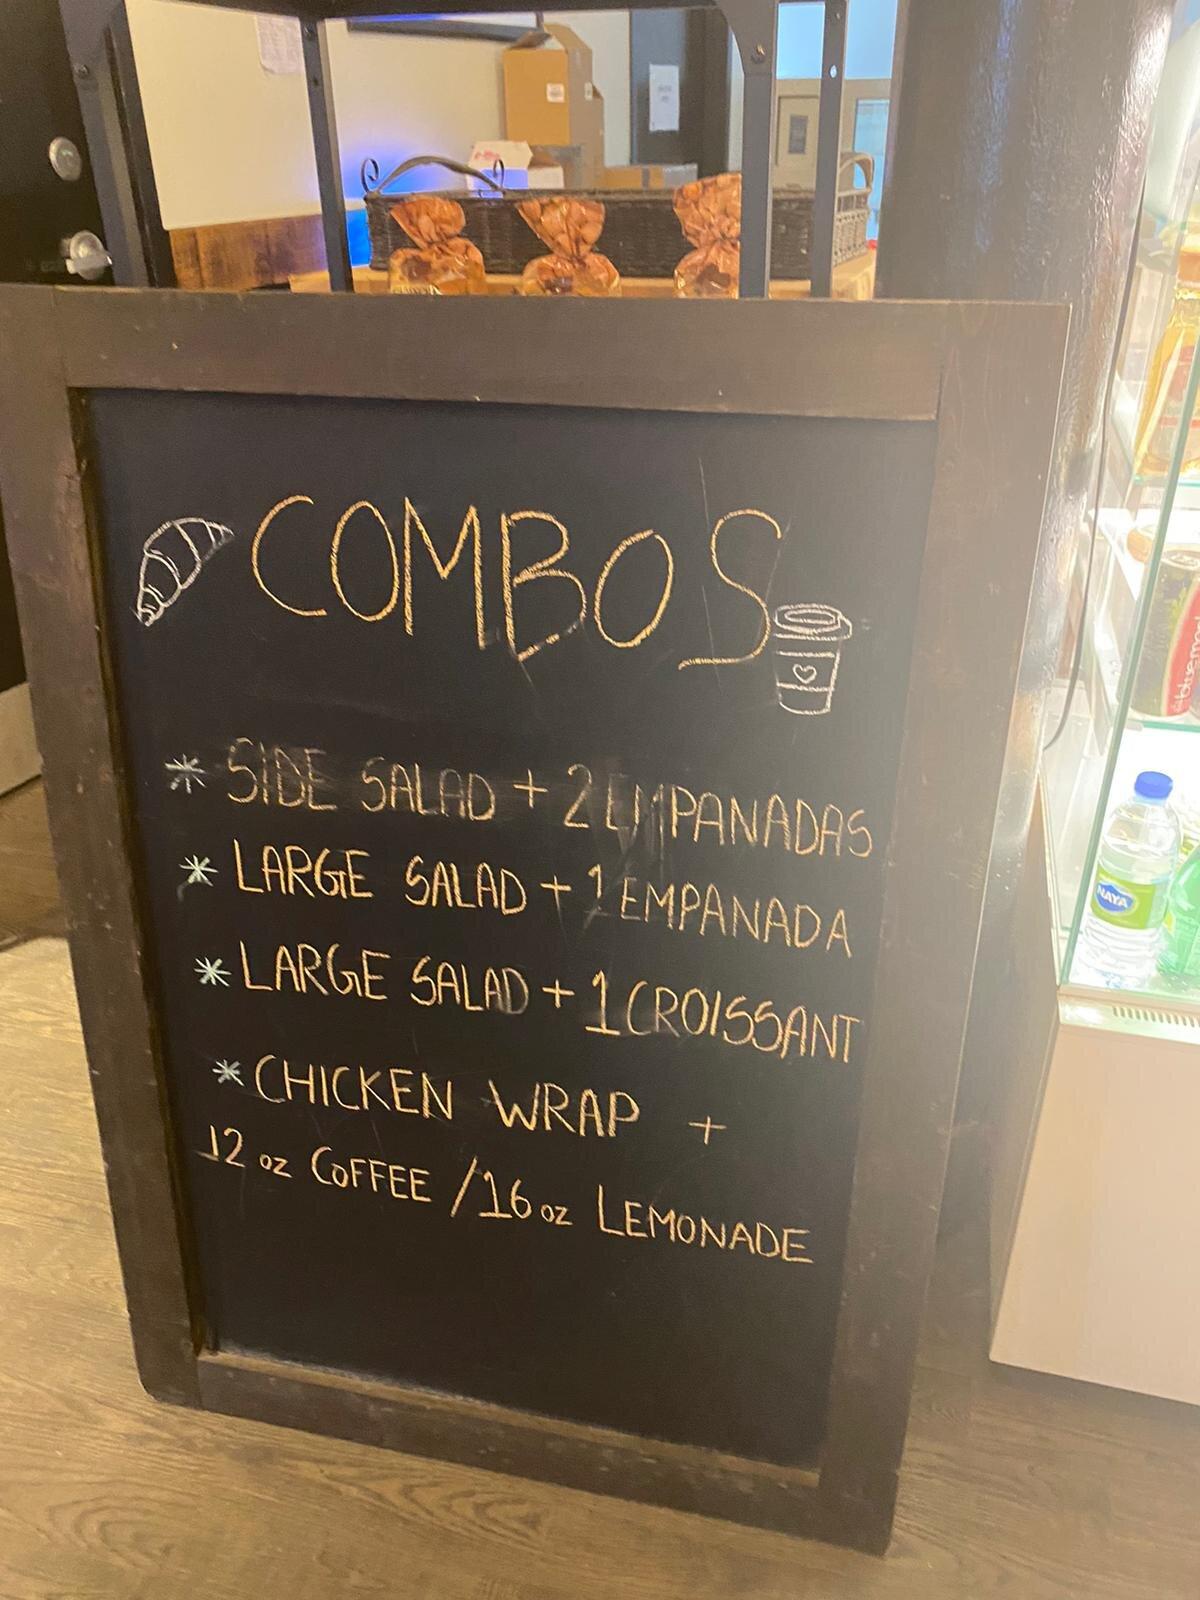 COMBOS
* SIDE SALAD + 2 EMPANADAS
* LARGE SALAD + 1 EMPANADA
* LARGE SALAD + 1 CROISSANT
* CHICKEN WRAP +
12 oz COFFEE / 16 oz LEMONADE
NAYA